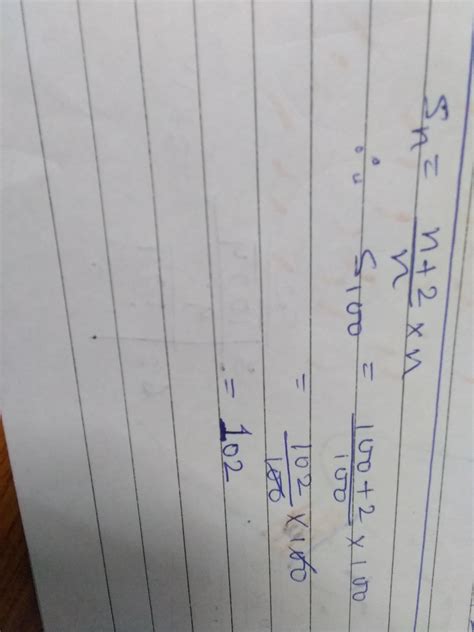 Sn = n+2/n × n
∴ S100 = 100+2/100 × 100
= 102/100 × 100
= 102